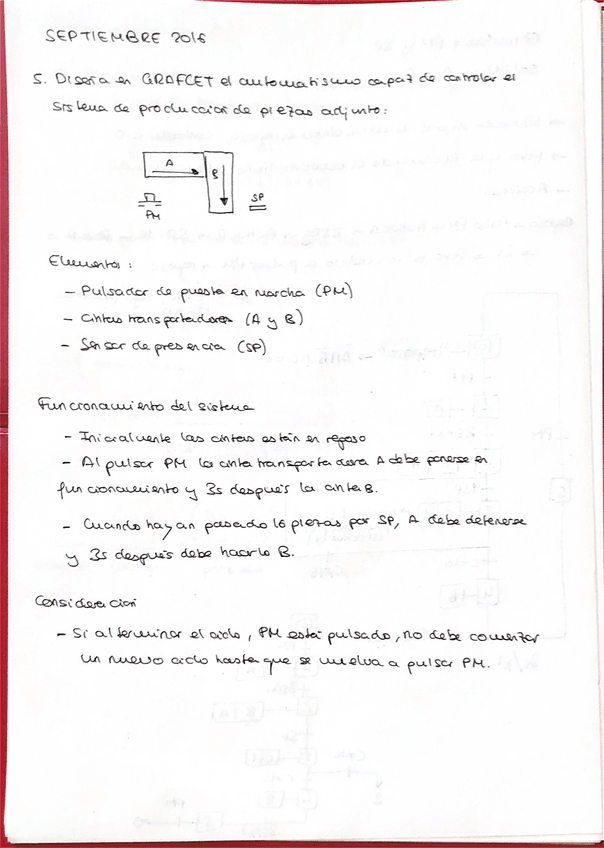 SEPTIEMBRE 2016
5. Diseña en GRAFCET el automatismo capaz de controlar el
sistema de produccion de piezas adjunto:
A
B
SP
PM
Elementos:
- Pulsador de puesta en marcha (PM)
- Cintas transportadoras (A y B)
- Sensor de presencia (SP)
Funcionamiento del sistema
- Inicialmente las cintas están en reposo
- Al pulsar PM la cinta transportadora A debe ponerse en
funcionamiento y 3s después la cinta B.
- Cuando hayan pasado 16 piezas por SP, A debe detenerse
y 3s después debe hacerlo B.
Consideracion
- Si al terminar el ciclo, PM está pulsado, no debe comenzar
un nuevo ciclo hasta que se vuelva a pulsar PM.